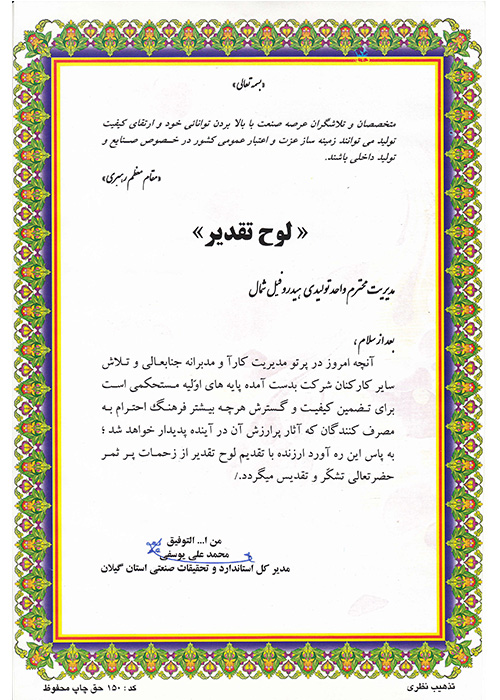 «بسمه تعالی»
متخصصان و تلاشگران عرصه صنعت با بالا بردن توانائی خود و ارتقای کیفیت
تولید می توانند زمینه ساز عزت و اعتبار عمومی کشور در خصوص صنایع و
تولید داخلی باشند.
«مقام معظم رهبری»
« لوح تقدیر »
مدیریت محترم واحد تولیدی هیدروفیل شمال
بعد از سلام ,
آنچه امروز در پرتو مدیریت کارآ و مدبرانه جنابعالی و تلاش
سایر کارکنان شرکت بدست آمده پایه های اوّلیه مستحکمی است
برای تضمین کیفیت و گسترش هرچه بیشتر فرهنگ احترام به
مصرف کنندگان که آثار پرارزش آن در آینده پدیدار خواهد شد ؛
به پاس این ره آورد ارزنده با تقدیم لوح تقدیر از زحمات پر ثمر
حضرتعالی تشکّر و تقدیس میگردد./
من ا... التوفیق
محمد علی یوسفی
مدیر کل استاندارد و تحقیقات صنعتی استان گیلان
تذهیب نظری
کد : ۱۵۰ حق چاپ محفوظ